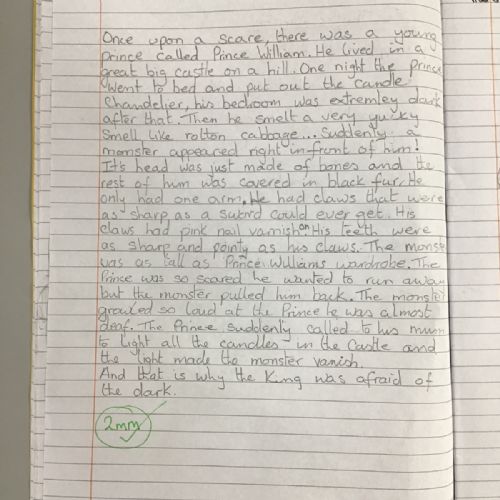 Once upon a scare, there was a young
prince called Prince William. He lived in a
great big castle on a hill. One night the prince
went to bed and put out the candle
Chandelier, his bedroom was extremley dark
after that. Then he smelt a very yucky
smell like rotton cabbage... Suddenly a
monster appeared right in front of him!
It's head was just made of bones and the
rest of him was covered in black fur. He
only had one arm. He had claws that were
as sharp as a sword could ever get. His
claws had pink nail varnish on. His teeth were
as sharp and pointy as his claws. The monster
was as tall as Prince Williams wardrobe. The
Prince was so scared he wanted to run away
but the monster pulled him back. The monster
growled so loud at the Prince he was almost
deaf. The Prince suddenly called to his mum
to light all the candles in the Castle and
the light made the monster vanish.
And that is why the King was afraid of
the dark.
2mm